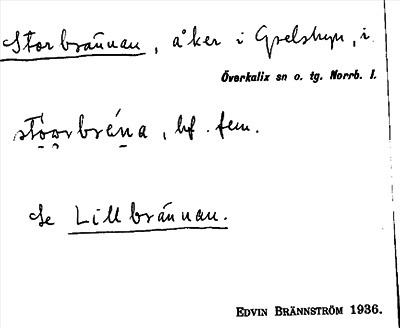 Storbrännan, åker i Gyelsbyn, i.
Överkalix sn o. tg. Norrb. l.
stoorbréna, bf. fem.
Se Lillbrännan.
EDVIN BRÄNNSTRÖM 1936.